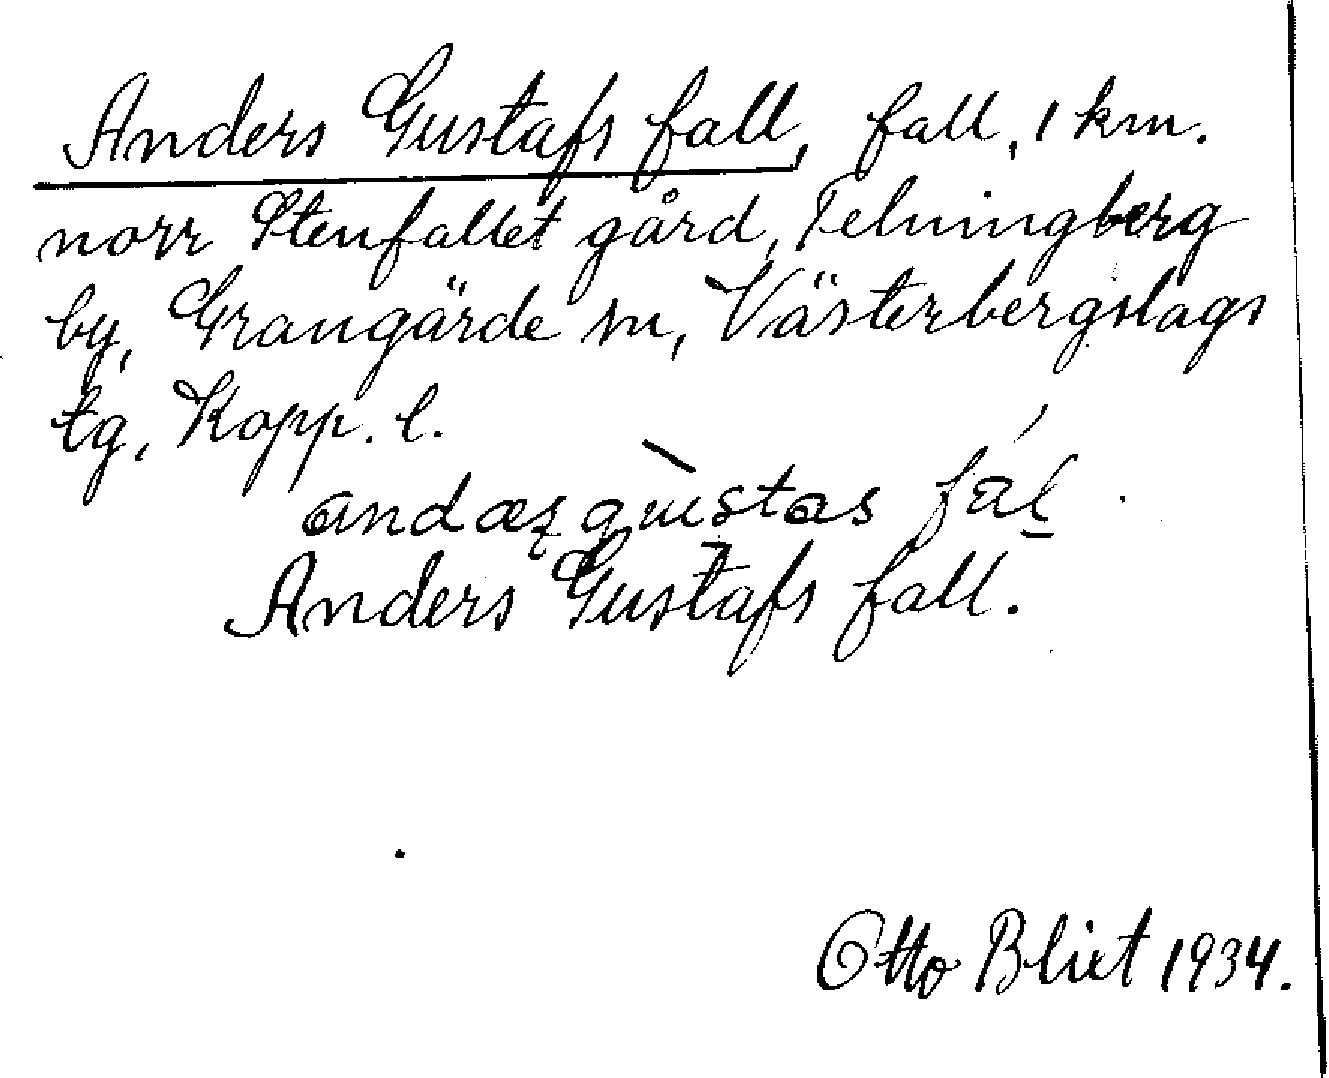 Anders Gustafs fall, fall, 1 km.
norr Stenfallet gård, Telningberg
by, Grangärde sn, Västerbergslags
tg, Kopp. l.
fal
Anders Gustafs fall.
Otto Blixt 1934.